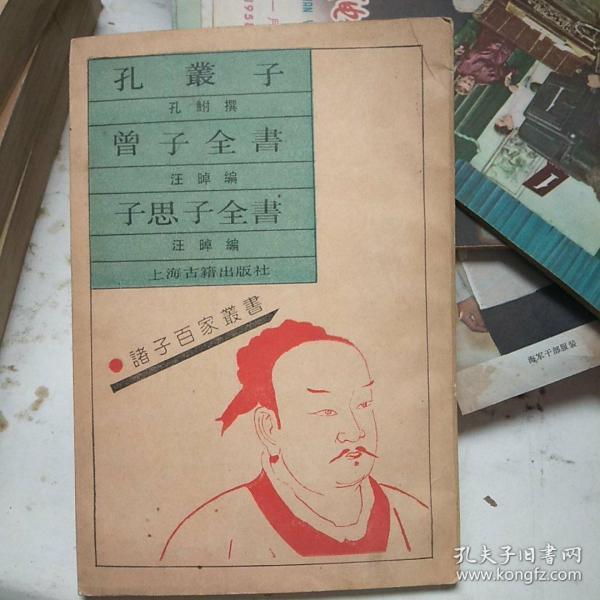 孔叢子
孔鮒撰
曾子全書
汪晫編
子思子全書
汪晫編
上海古籍出版社
諸子百家叢書
海军干部服装
孔夫子旧书网
www.kongfz.com